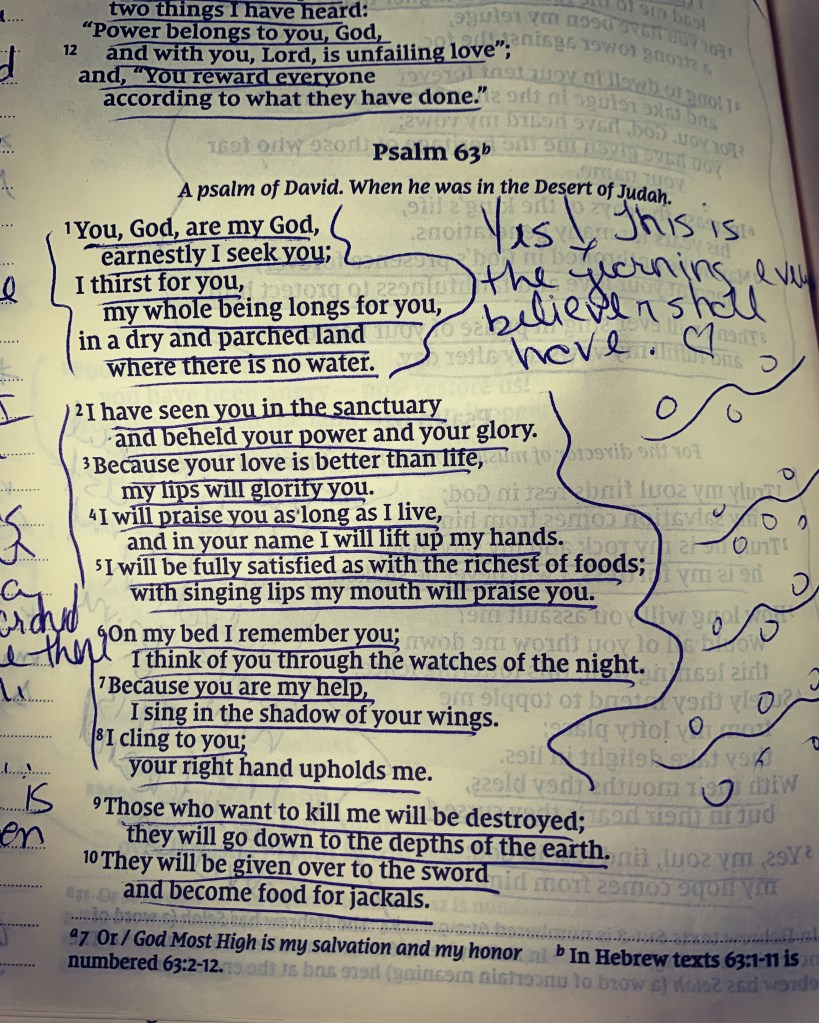 two things I have heard:
“Power belongs to you, God,
12 and with you, Lord, is unfailing love”;
and, “You reward everyone
according to what they have done.”
Psalm 63b
A psalm of David. When he was in the Desert of Judah.
1You, God, are my God,
earnestly I seek you;
I thirst for you,
my whole being longs for you,
in a dry and parched land
where there is no water.
Yes! This is
the yearning every
believer shall
have.
2I have seen you in the sanctuary
and beheld your power and your glory.
3Because your love is better than life,
my lips will glorify you.
4I will praise you as long as I live,
and in your name I will lift up my hands.
5I will be fully satisfied as with the richest of foods;
with singing lips my mouth will praise you.
6On my bed I remember you;
I think of you through the watches of the night.
7Because you are my help,
I sing in the shadow of your wings.
8I cling to you;
your right hand upholds me.
9Those who want to kill me will be destroyed;
they will go down to the depths of the earth.
10They will be given over to the sword
and become food for jackals.
a7 Or / God Most High is my salvation and my honor b In Hebrew texts 63:1-11 is
numbered 63:2-12.
is